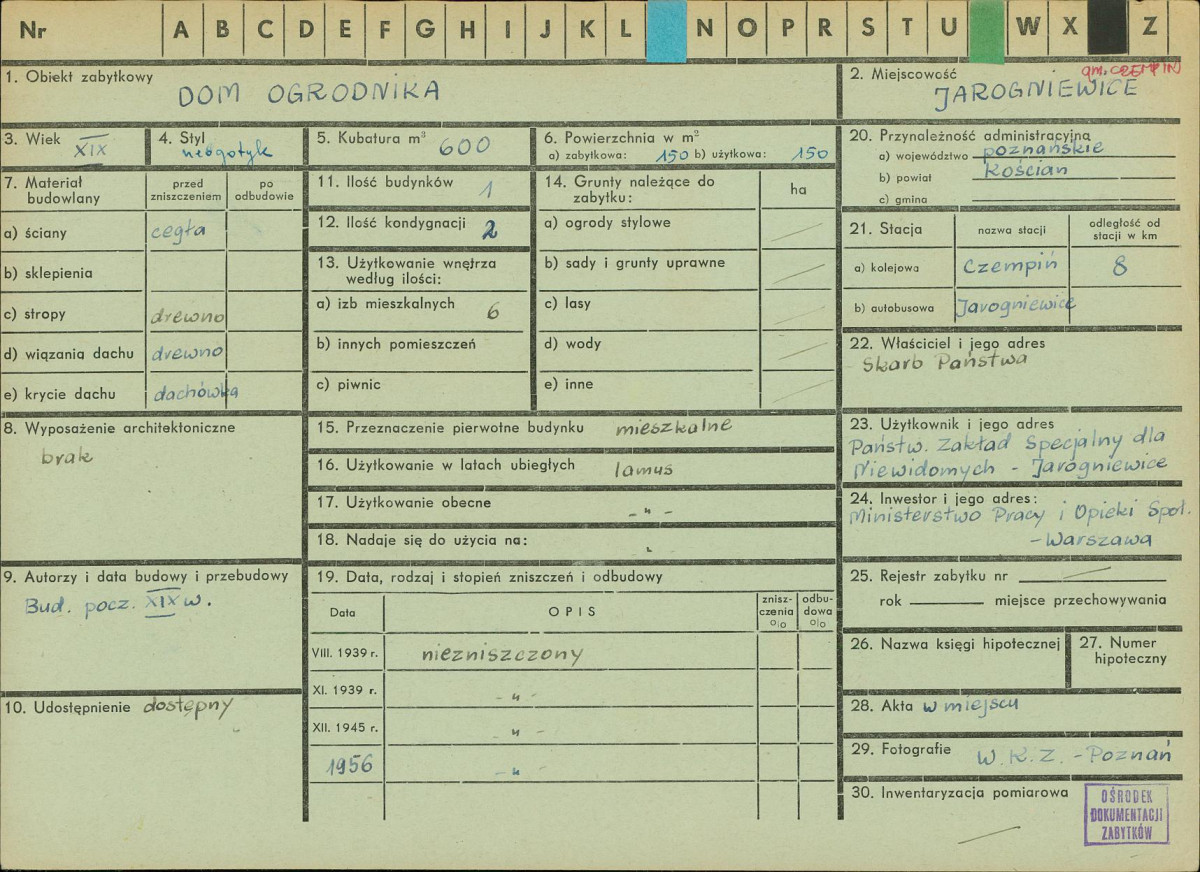 Nr A B C D E F G H I J K L N O P R S T U W X Z
1. Obiekt zabytkowy
DOM OGRODNIKA
2. Miejscowość
gm. CZEMPIŃ
JAROGNIEWICE
3. Wiek
XIX
4. Styl
neogotyk
5. Kubatura m³ 600
6. Powierzchnia w m²
a) zabytkowa: 150 b) użytkowa: 150
7. Materiał budowlany
przed zniszczeniem
po odbudowie
a) ściany cegła
b) sklepienia
c) stropy drewno
d) wiązania dachu drewno
e) krycie dachu dachówka
8. Wyposażenie architektoniczne
brak
9. Autorzy i data budowy i przebudowy
Bud. pocz. XIX w.
10. Udostępnienie dostępny
11. Ilość budynków 1
12. Ilość kondygnacji 2
13. Użytkowanie wnętrza
według ilości:
a) izb mieszkalnych 6
b) innych pomieszczeń
c) piwnic
14. Grunty należące do
zabytku:
ha
a) ogrody stylowe
b) sady i grunty uprawne
c) lasy
d) wody
e) inne
15. Przeznaczenie pierwotne budynku mieszkalne
16. Użytkowanie w latach ubiegłych lamus
17. Użytkowanie obecne - " -
18. Nadaje się do użycia na: "
19. Data, rodzaj i stopień zniszczeń i odbudowy
Data
OPIS
znisz-
czenia
%
odbu-
dowa
%
VIII. 1939 r. niezniszczony
XI. 1939 r. - " -
XII. 1945 r. - " -
1956 - " -
20. Przynależność administracyjna
a) województwo poznańskie
b) powiat Kościan
c) gmina
21. Stacja
nazwa stacji
odległość od
stacji w km
a) kolejowa Czempiń 8
b) autobusowa Jarogniewice
22. Właściciel i jego adres
Skarb Państwa
23. Użytkownik i jego adres
Państw. Zakład Specjalny dla
Niewidomych - Jarogniewice
24. Inwestor i jego adres:
Ministerstwo Pracy i Opieki Społ.
- Warszawa
25. Rejestr zabytku nr
rok miejsce przechowywania
26. Nazwa księgi hipotecznej
27. Numer
hipoteczny
28. Akta w miejscu
29. Fotografie W. K. Z. - Poznań
30. Inwentaryzacja pomiarowa
OŚRODEK
DOKUMENTACJI
ZABYTKÓW